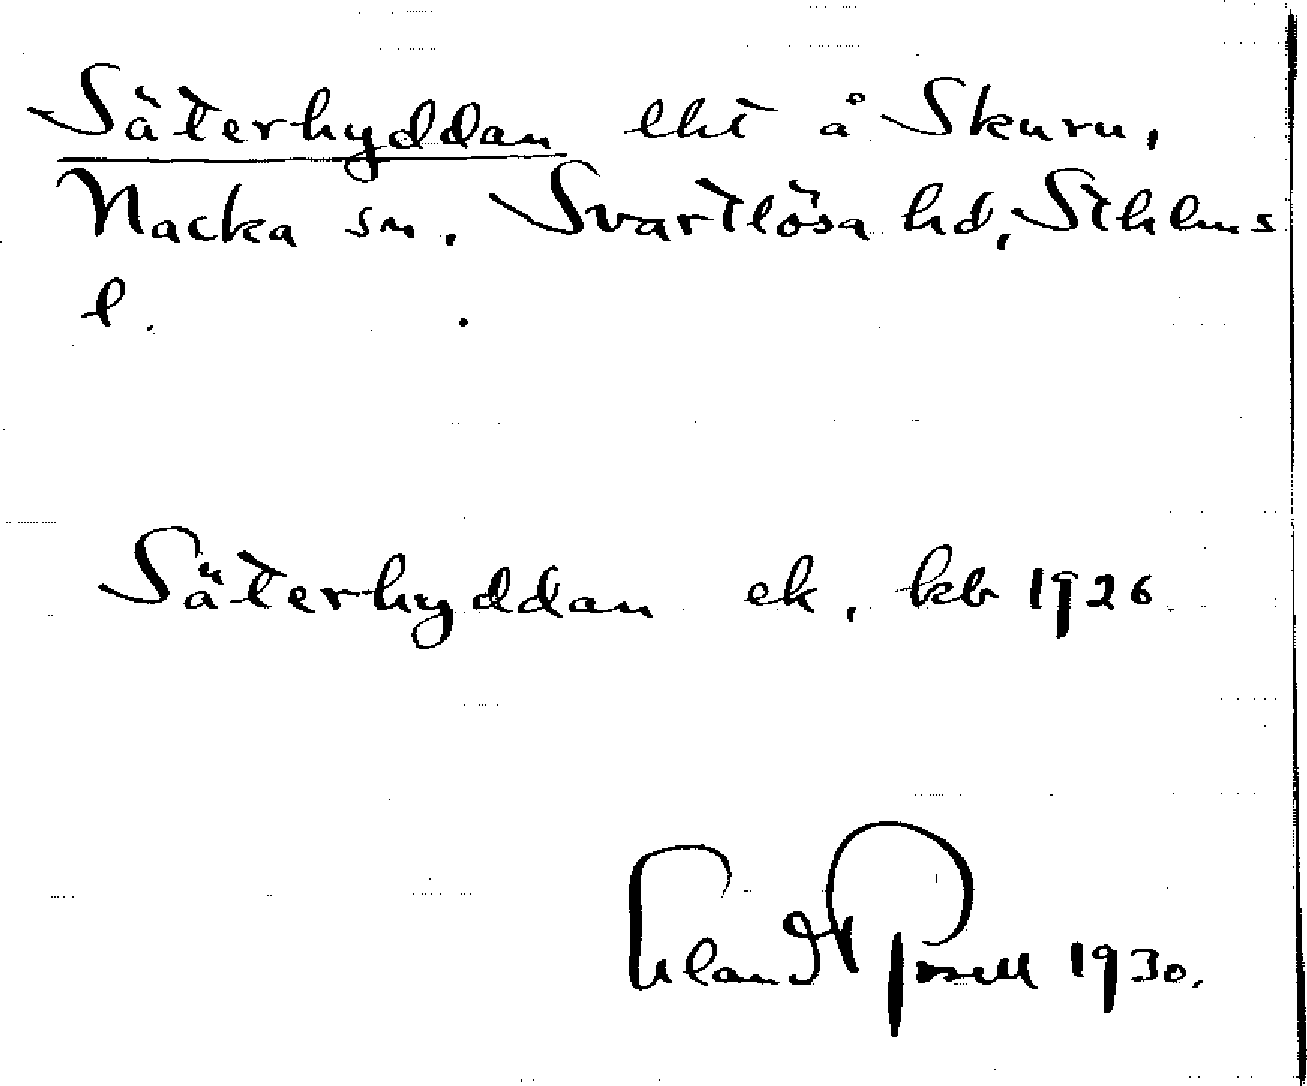 Säterhyddan lht å Skuru,
Nacka sn. Svartlösa hd, Sthlms
l.
Säterhyddan ek. kb 1926
Erland Rosell 1930.